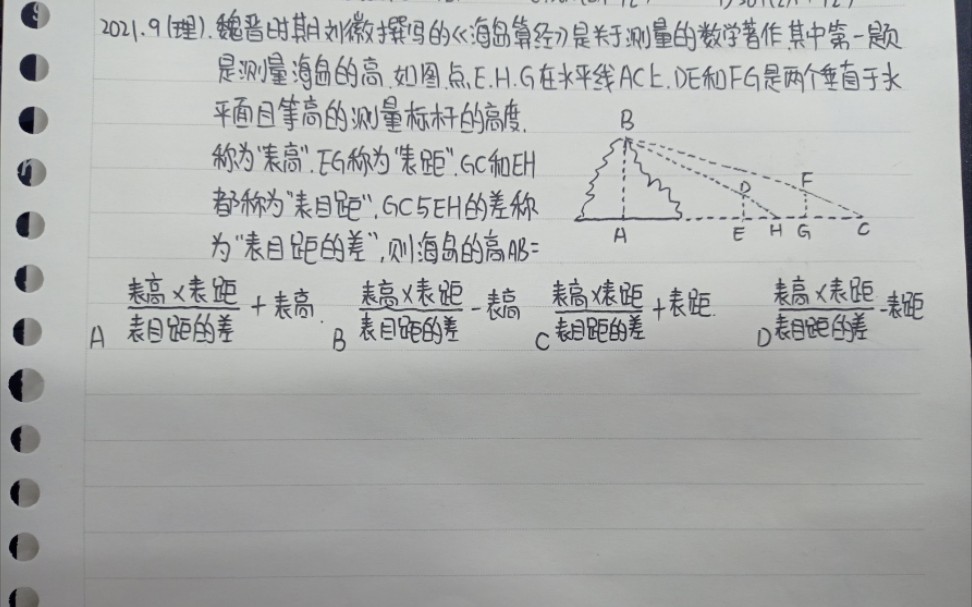 2021.9(理).魏晋时期刘徽撰写的《海岛算经》是关于测量的数学著作.其中第一题
是测量海岛的高.如图.点.E.H.G在水平线AC上.DE和FG是两个垂直于水
平面且等高的测量标杆的高度,
称为"表高".EG称为"表距".GC和EH
都称为"表目距".GC与EH的差称
为"表目距的差",则海岛的高AB=
B
D
F
A
E
H
G
C
A 表高×表距/表目距的差 + 表高.
B 表高×表距/表目距的差 - 表高
C 表高×表距/表目距的差 + 表距.
D 表高×表距/表目距的差 - 表距